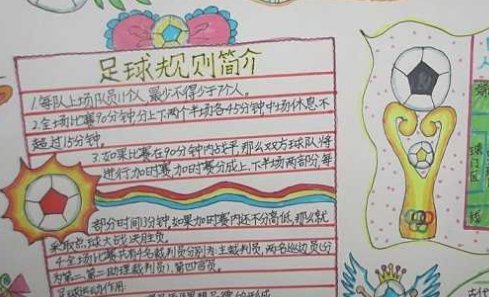 足球规则简介
1.每队上场队员11个人,最少不得少于7个人。
2.全场比赛90分钟分上下两个半场各45分钟中场休息不
超过15分钟。
3.如果比赛在90分钟内战平,那么双方球队将
进行加时赛,加时赛分成上、下半场两部分,每
部分时间15分钟,如果加时赛内还不分高低,那么就
采取点球大战决胜负。
4.全场比赛共有4名裁判员分别为:主裁判员,两名巡边员(分
为第一,第二助理裁判员),第四官员。
足球运动作用: